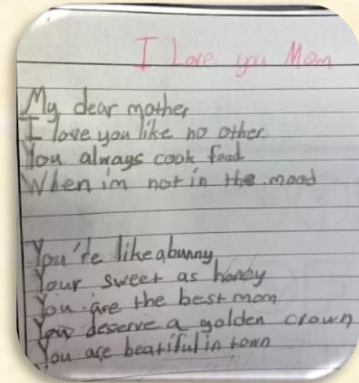 I Love you Mom
My dear mother
I love you like no other
You always cook food
When im not in the mood
You're like a bunny
Your sweet as honey
You are the best mom
You deserve a golden crown
You are beatiful in town